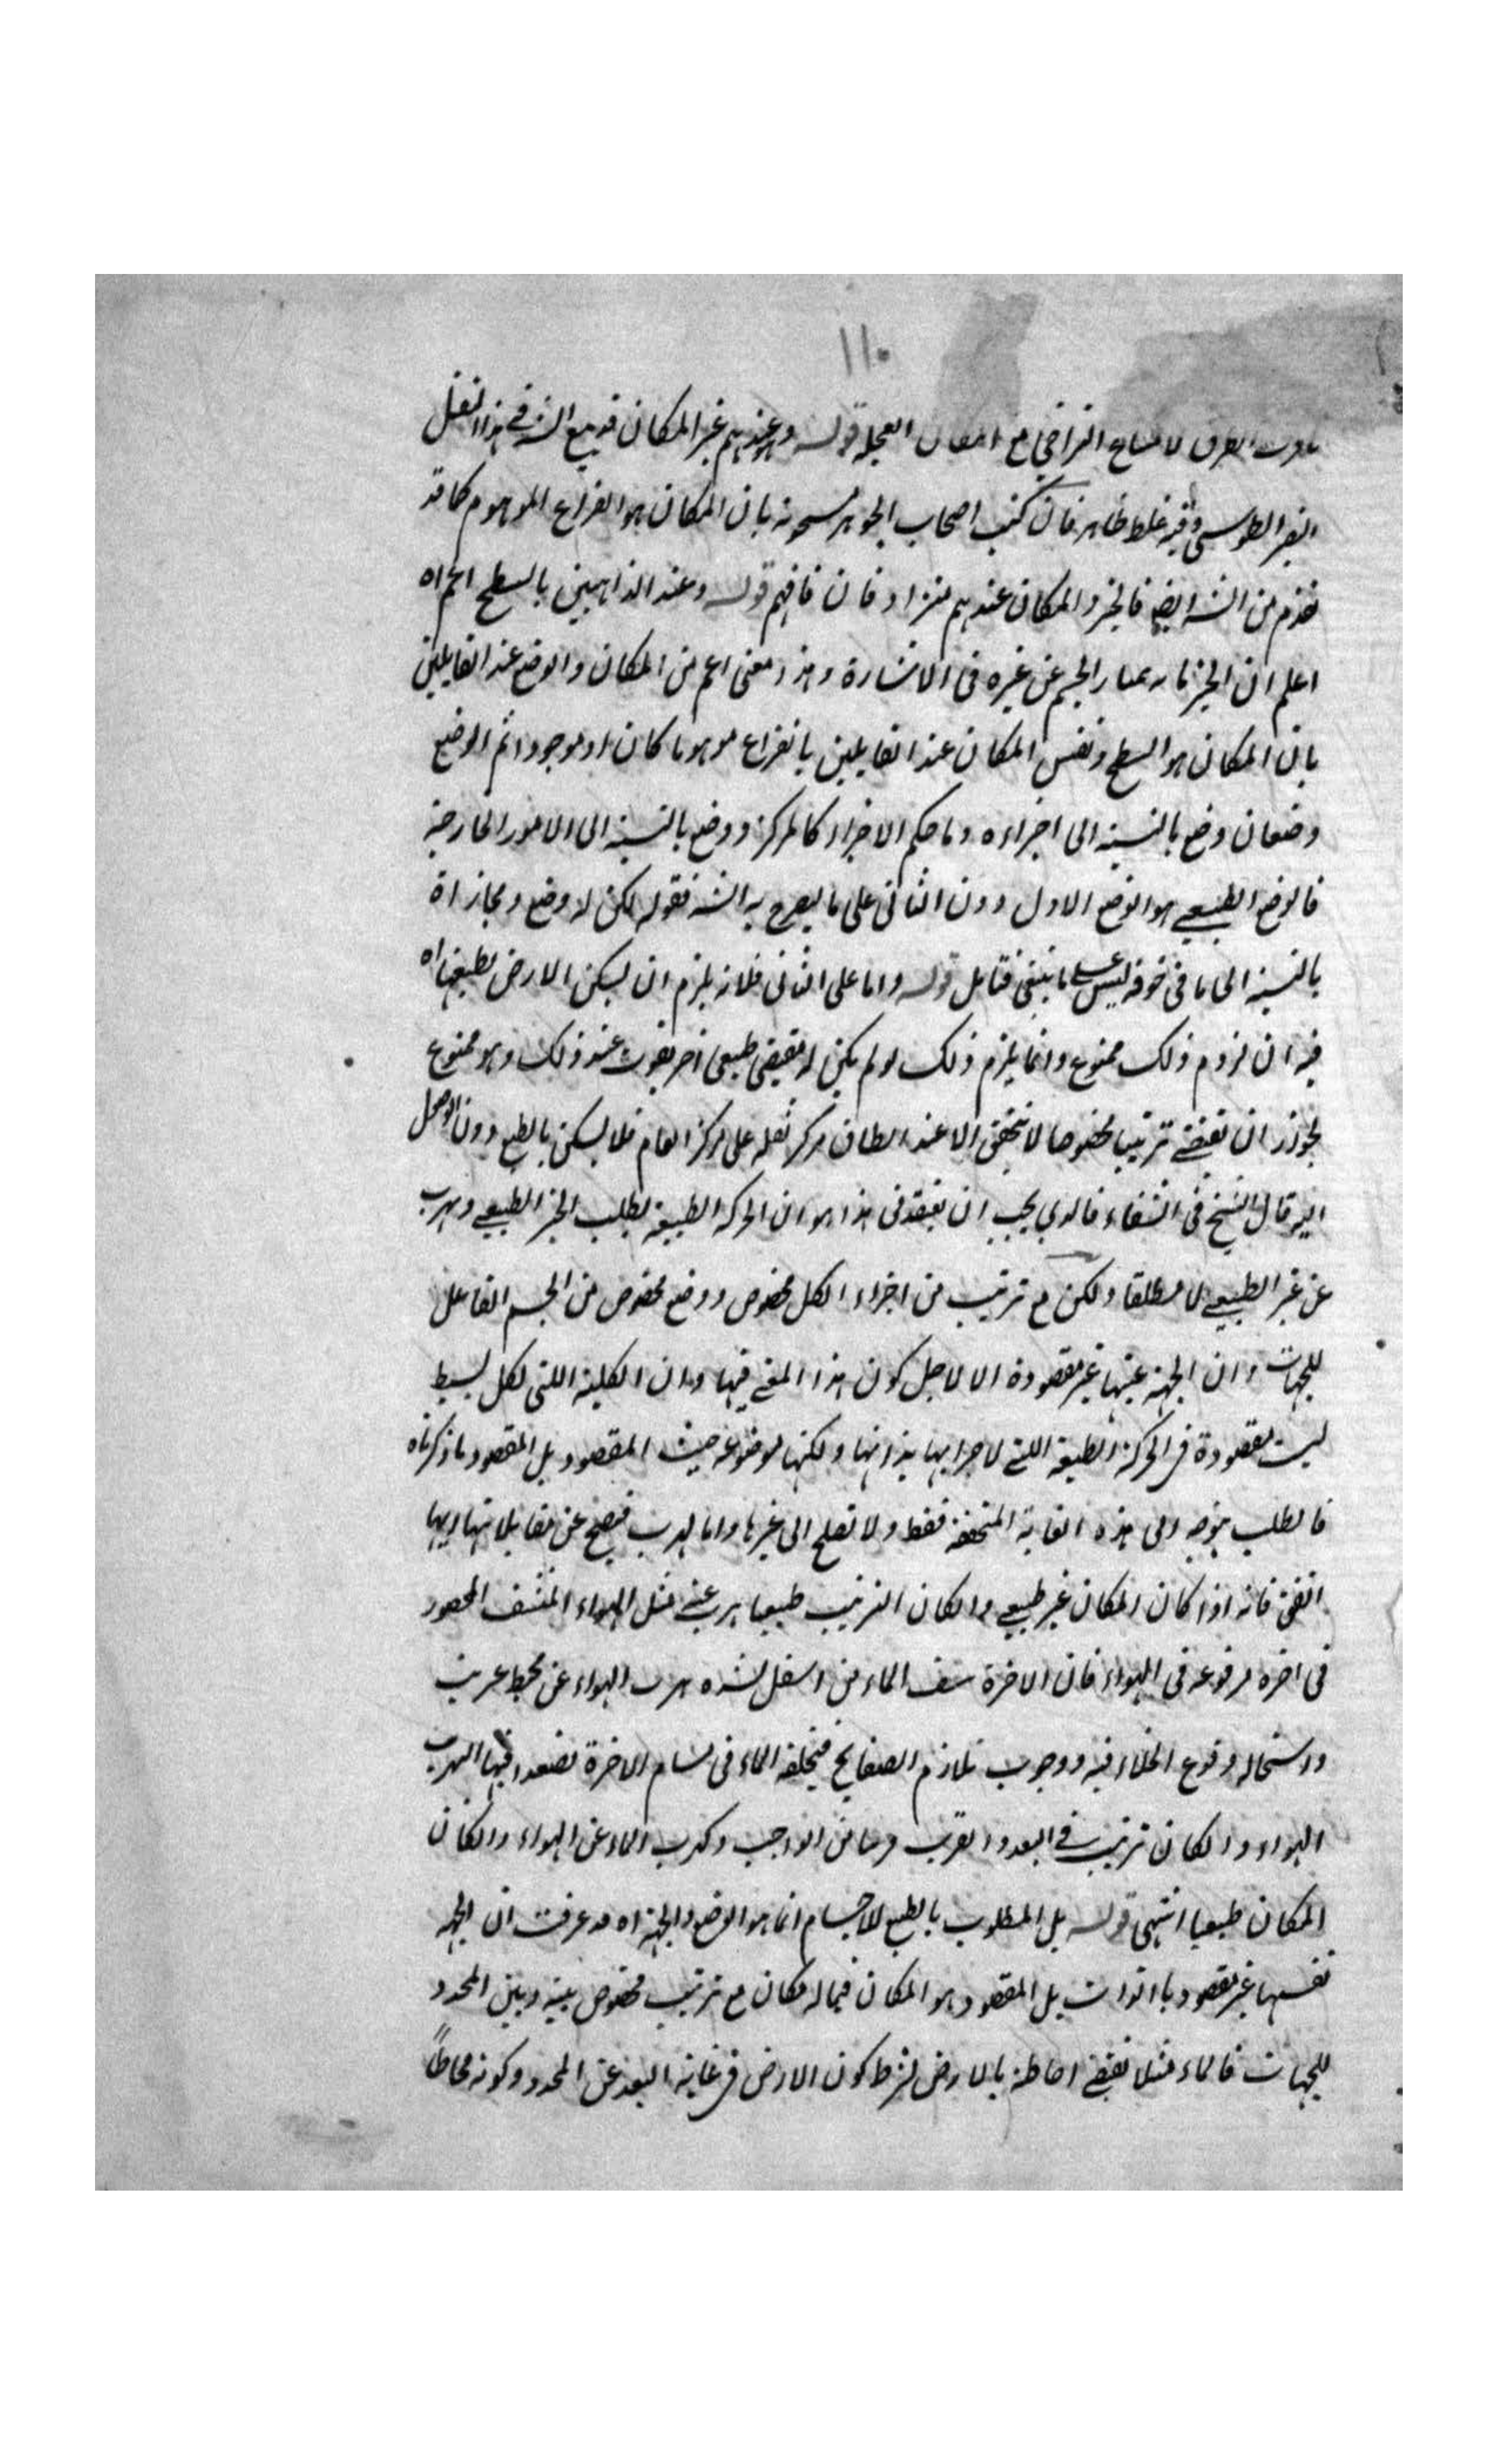 ١١٠
التراخي مع العجلة قوله وهو عندهم غير المكان قد تبع الشه في هذا النقل
النصير الطوسي وفيه غلط ظاهر فان كتب اصحاب الجوهر مشحونة بان المكان هو الفراغ الموهوم كما قد
تقدم من الشه ايضا فالحيز والمكان عندهم مترادفان فافهم قوله وعند الذاهبين بالسطح اعم اه
اعلم ان الحيز ما به يمتاز الجسم عن غيره في الاشارة وهذا معنى اعم من المكان والوضع عند القايلين
بان المكان هو السطح ونفس المكان عند القايلين بالفراغ موهوما كان او موجودا ثم الوضع
وضعان وضع بالنسبة الى اجزاءه وما حكم الاجزاء كالمركز ووضع بالنسبة الى الامور الخارجة
فالوضع الطبيعي هو الوضع الاول دون الثاني على ما يصرح به الشه فقوله لكن له وضع ومحاذاة
بالنسبة الى ما في جوفه ليس على ما ينبغي فتامل قوله واما على الثاني فلانه يلزم ان يسكن الارض بطبعها اه
فيه ان لزوم ذلك ممنوع وانما يلزم ذلك لو لم يكن له مقتضى طبيعي اخر يفوت عند ذلك وهو ممنوع
لجواز ان تقتضي ترتيبا مخصوصا لا يتحقق الا عند انطباق مركز ثقله على مركز العالم فلا يسكن بالطبع دون الوصول
اليه قال الشيخ في الشفاء فالذي يجب ان يعتقد في هذا هو ان الحركة الطبيعية تطلب الحيز الطبيعي وتهرب
عن غير الطبيعي لا مطلقا ولكن مع ترتيب من اجزاء الكل مخصوص ووضع مخصوص من الجسم الفاعل
للجهات وان الجهة عينها غير مقصودة الا لاجل كون هذا المعنى فيها وان الكلية اللتي لكل بسيط
ليست مقصودة في الحركة الطبيعية اللتي لاجزائها بذاتها ولكنها موضوعة حيث المقصود بل المقصود ما ذكرناه
فالطلب يتوجه الى هذه الغاية المتحققة فقط ولا تصلح الى غيرها واما الهرب فيصح عن مقابلاتها ايها
اتفق فانه اذا كان المكان غير طبيعي وان كان الترتيب طبيعيا هرب عنه مثل الهواء المنشف المحصور
في اجرة مرفوعة في الهواء فان الاجرة تنشف الماء من اسفل لشدة هرب الهواء عن محيط غريب
واستحالة وقوع الخلاء فيه ووجوب تلازم الصفايح فيخلفه الماء في مسام الاجرة تصعدا فيها الهرب
الهواء وان كان ترتيب في البعد والقرب قريبا من الواجب وكهرب الماء عن الهواء وان كان
المكان طبيعيا انتهى قوله بل المطلوب بالطبع للاجسام انما هو الوضع والجهة اه قد عرفت ان الجهة
نفسها غير مقصود بالذات بل المقصود هو المكان فيما له مكان مع ترتيب مخصوص بينه وبين المحدد
للجهات فالماء مثلا يقتضي احاطة بالارض بشرط كون الارض في غاية البعد عن المحدد وكونه محاطاً